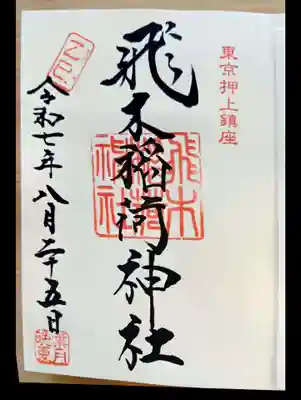 東京押上鎮座
飛木稲荷神社
飛木稲荷神社
令和七年八月二十五日
葉月